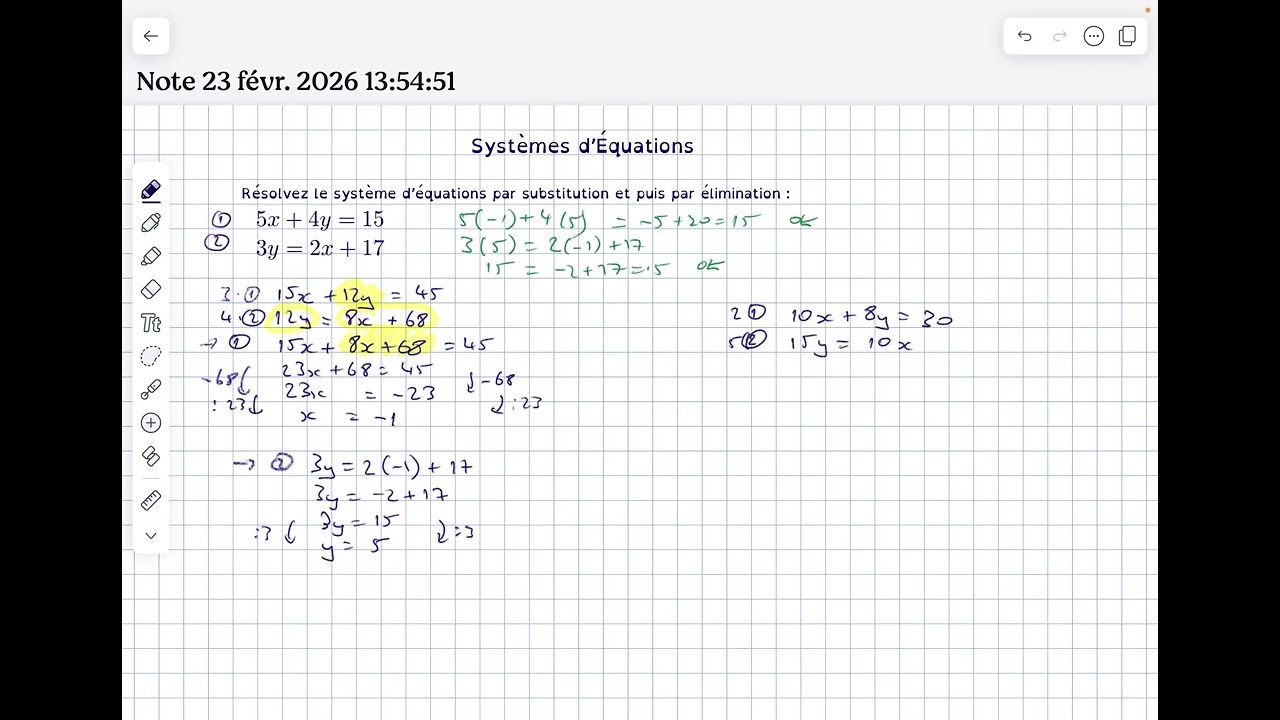 Note 23 févr. 2026 13:54:51
Systèmes d'Équations
Résolvez le système d'équations par substitution et puis par élimination :
① 5x + 4y = 15
② 3y = 2x + 17
5(-1) + 4(5) = -5 + 20 = 15 ok
3(5) = 2(-1) + 17
15 = -2 + 17 = 15 ok
3·① 15x + 12y = 45
4·② 12y = 8x + 68
→ ① 15x + 8x + 68 = 45
-68 ↓ 23x + 68 = 45 ↓ -68
:23 ↓ 23x = -23 ↓ :23
x = -1
→ ② 3y = 2(-1) + 17
3y = -2 + 17
:3 ↓ 3y = 15 ↓ :3
y = 5
2① 10x + 8y = 30
5② 15y = 10x
Tt